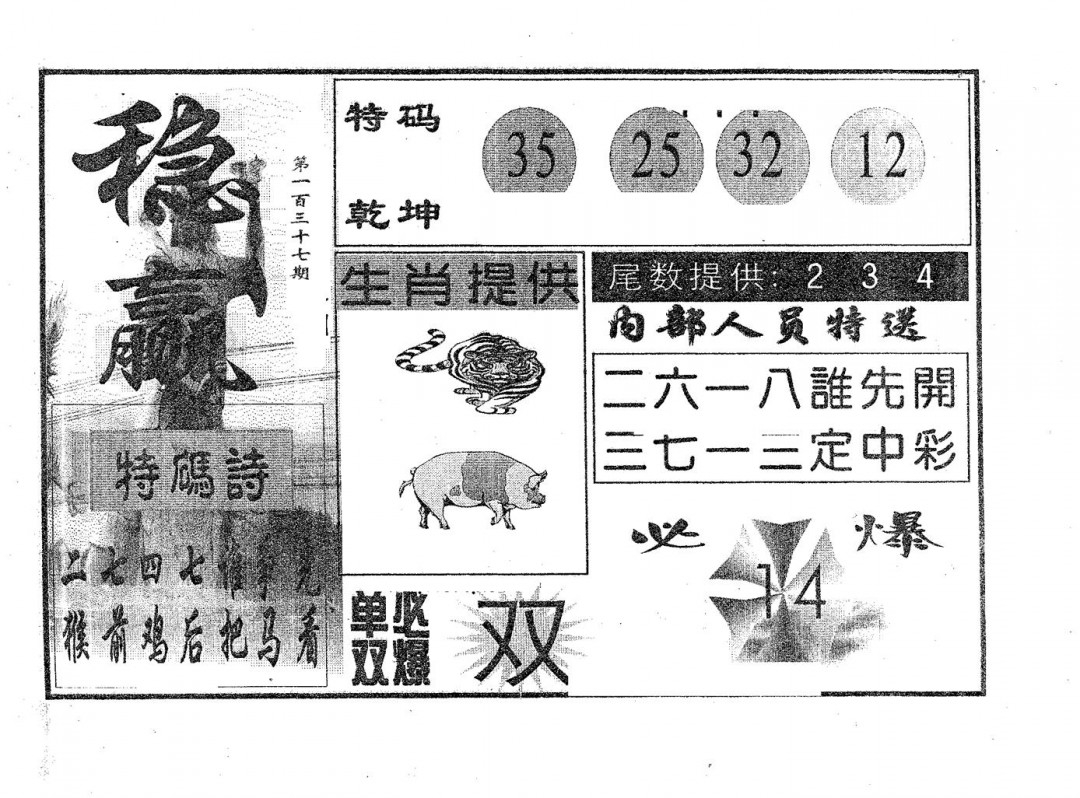 稳赢
第一百三十七期
特碼詩
二七四七惟争先
猴前鸡后把马看
特码
乾坤
35 25 32 12
生肖提供
单双必爆
双
尾数提供: 2 3 4
内部人员特送
二六一八誰先開
三七一三定中彩
必爆
14